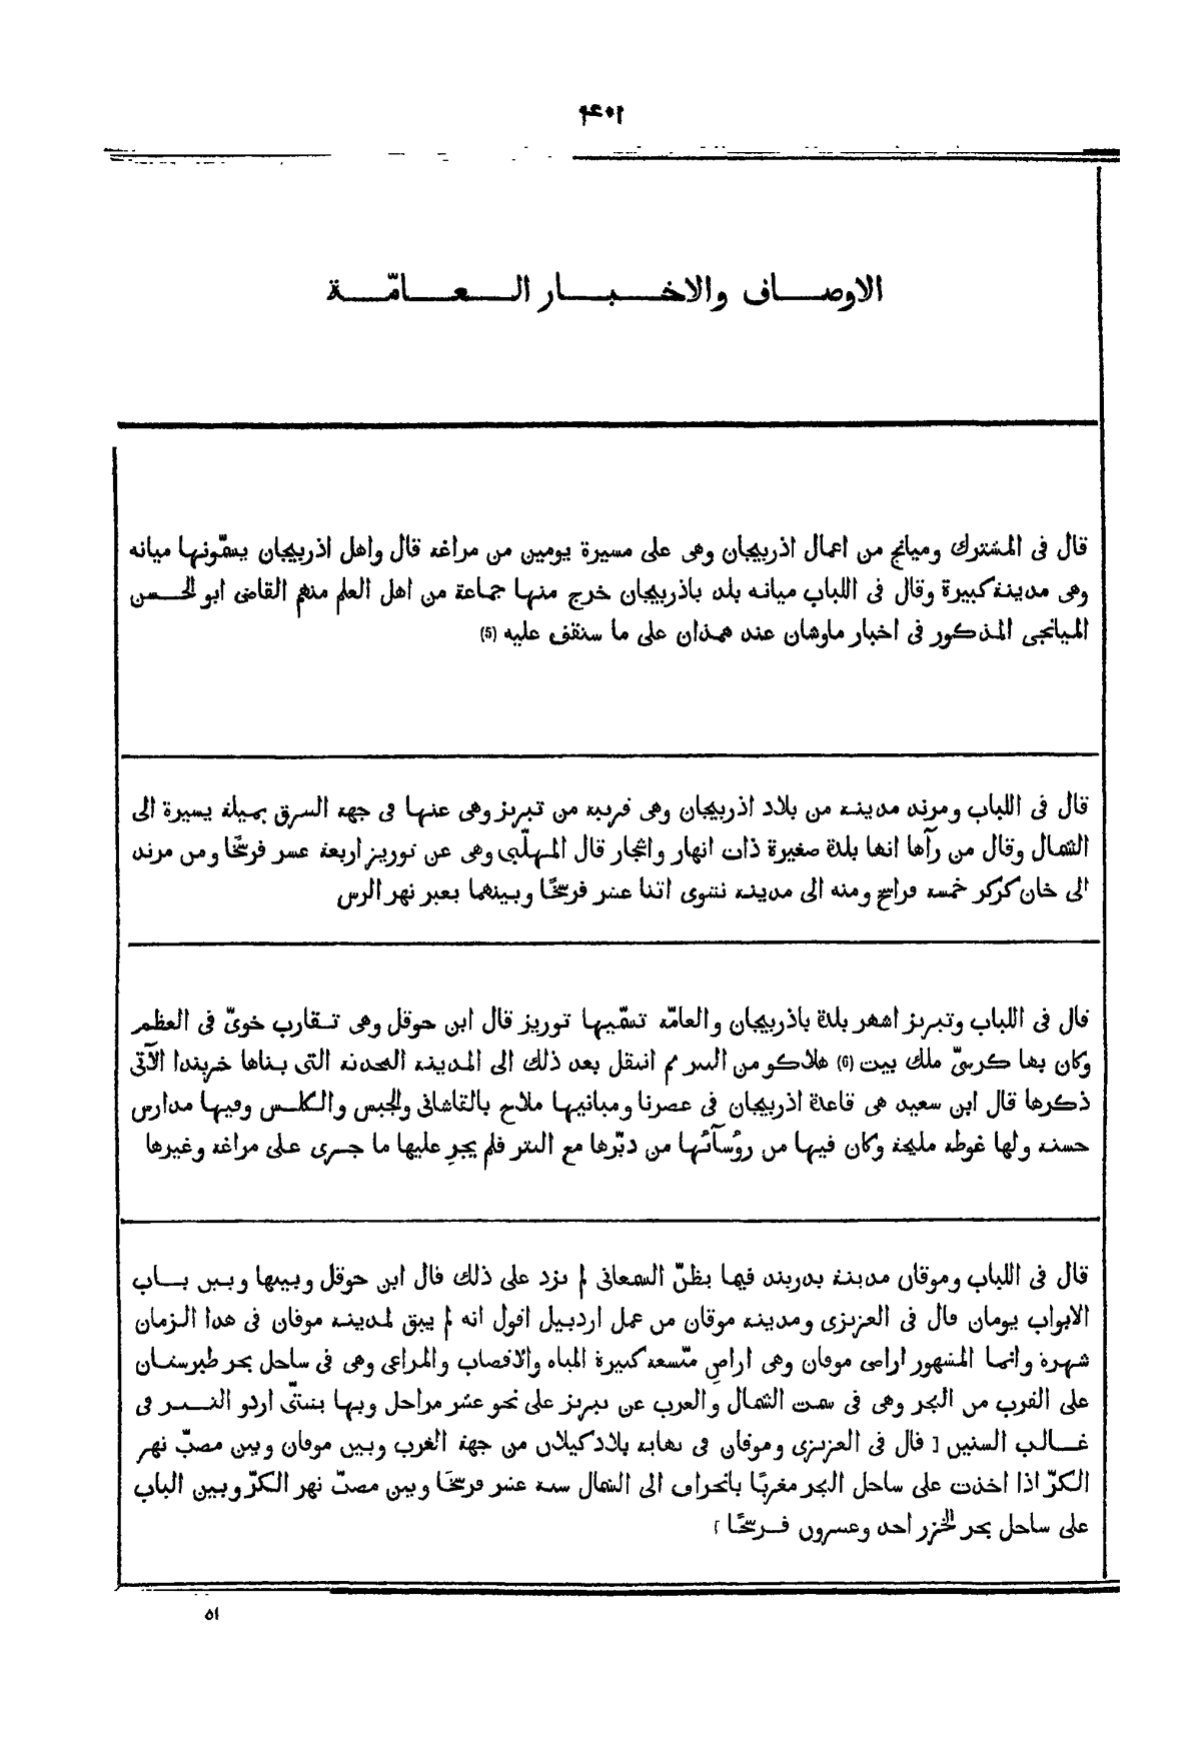 ۴۰۱
الاوصاف والاخبار العامّة
قال فى المشترك وميانج من اعمال اذربيجان وهى على مسيرة يومين من مراغه قال واهل اذربيجان يسمّونها ميانه
وهى مدينة كبيرة وقال فى اللباب ميانه بلد باذربيجان خرج منها جماعة من اهل العلم منهم القاضى ابو الحسن
الميانجى المذكور فى اخبار ماوشان عند همذان على ما سنقف عليه (5)
قال فى اللباب ومرند مدينه من بلاد اذربيجان وهى قريبه من تبريز وهى عنها فى جهه الشرق بميله يسيرة الى
الشمال وقال من رآها انها بلدة صغيرة ذات انهار واشجار قال المهلّبى وهى عن توريز اربعه عشر فرسخًا ومن مرند
الى خان كركر خمسه فراسخ ومنه الى مدينه نشوى اثنا عشر فرسخًا وبينهما يعبر نهر الرس
قال فى اللباب وتبريز اشهر بلدة باذربيجان والعامّه تسمّيها توريز قال ابن حوقل وهى تقارب خوىّ فى العظم
وكان بها كرسىّ ملك بيت (6) هلاكو من التتر ثم انتقل بعد ذلك الى المدينه المحدثه التى بناها خربندا الآتى
ذكرها قال ابن سعيد هى قاعدة اذربيجان فى عصرنا ومبانيها ملاح بالقاشانى والجبس والكلس وفيها مدارس
حسنه ولها غوطه مليحه وكان فيها من رؤسآئها من دبّرها مع التتر فلم يجرِ عليها ما جرى على مراغه وغيرها
قال فى اللباب وموقان مدينة بدربند فيما يظنّ السمعانى لم يزد على ذلك قال ابن حوقل وبينها وبين باب
الابواب يومان قال فى العزيزى ومدينه موقان من عمل اردبيل اقول انه لم يبق لمدينه موقان فى هذا الزمان
شهرة وانما المشهور اراضى موقان وهى اراضٍ متّسعه كثيرة المياه والاقصاب والمراعى وهى فى ساحل بحر طبرستان
على القرب من البحر وهى فى سمت الشمال والغرب عن تبريز على نحو عشر مراحل وبها يشتّى اردو التتر فى
غالب السنين [ قال فى العزيزى وموقان فى نهايه بلاد كيلان من جهة الغرب وبين موقان وبين مصبّ نهر
الكرّ اذا اخذت على ساحل البحر مغربًا بانحراف الى الشمال سته عشر فرسخًا وبين مصبّ نهر الكرّ وبين الباب
على ساحل بحر الخزر احد وعشرون فرسخًا ]
٥١